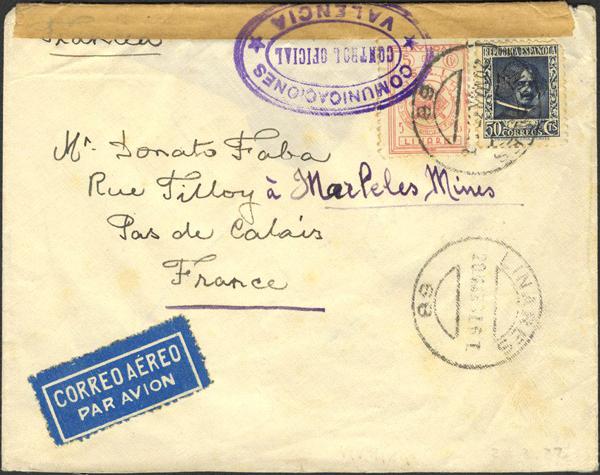 Francia
COMUNICACIONES
CONTROL OFICIAL
★ VALENCIA ★
5 5
LINARES
REPUBLICA ESPAÑOLA
50 CORREOS CTS
Mr. Donato Faba
Rue Tilloy à Marpeles Mines
Pas de Calais
France
LINARES
68
68
CORREO AÉREO
PAR AVION